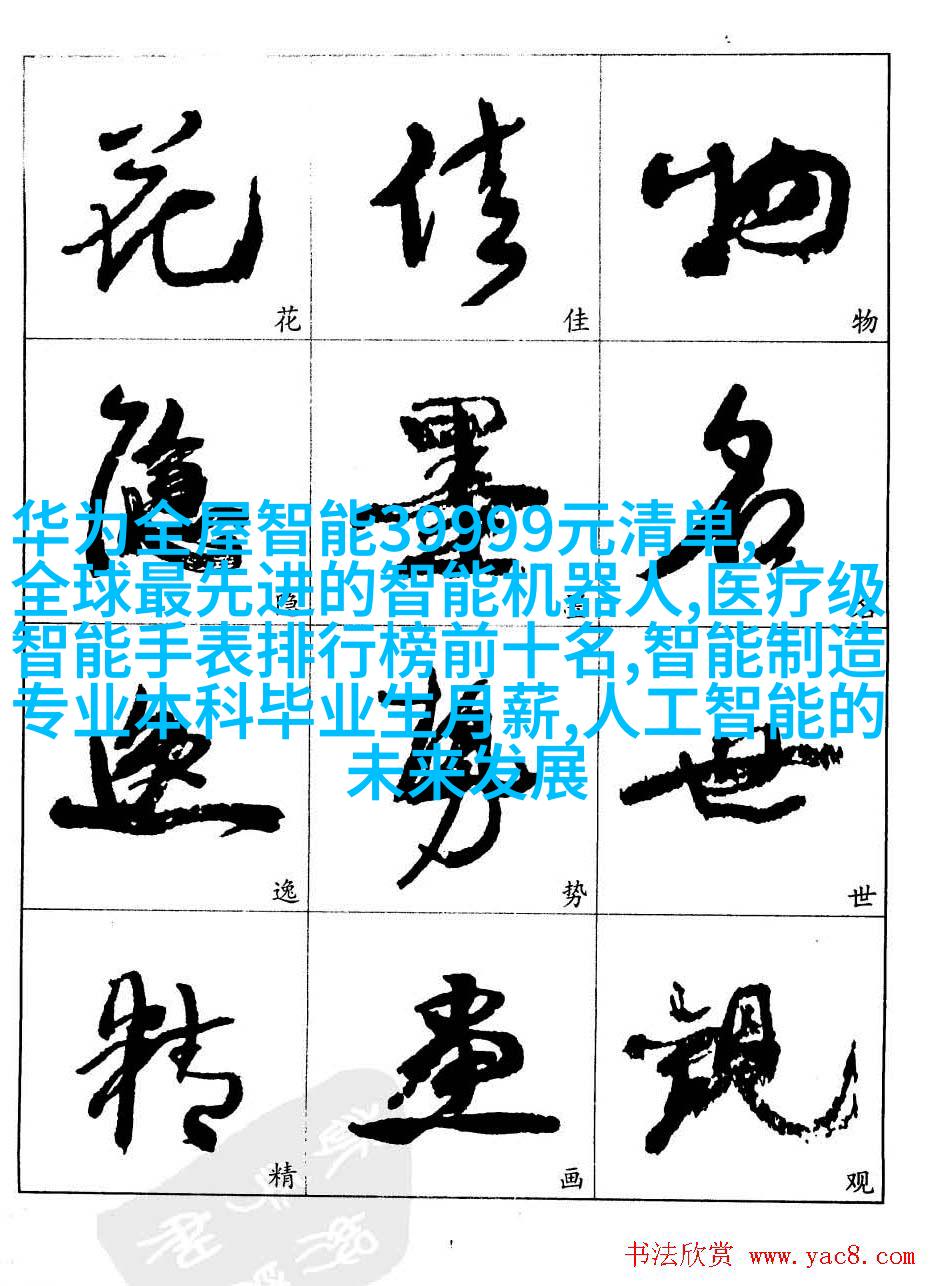 花 佳 物
花 佳 物
隐 墨 名
隐 墨 名
华为全屋智能39999元清单,
全球最先进的智能机器人,医疗级
智能手表排行榜前十名,智能制造
专业本科毕业生月薪,人工智能的
未来发展
逸 势 世
逸 势 世
精 画 观
精 画 观
书法欣赏 www.yac8.com